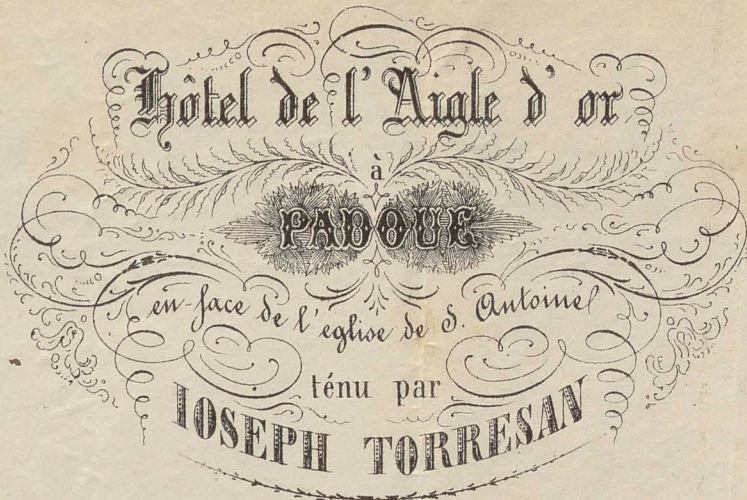 Hôtel de l' Aigle d' or
à
PADOUE
en-face de l'eglise de S. Antoine
ténu par
IOSEPH TORRESAN